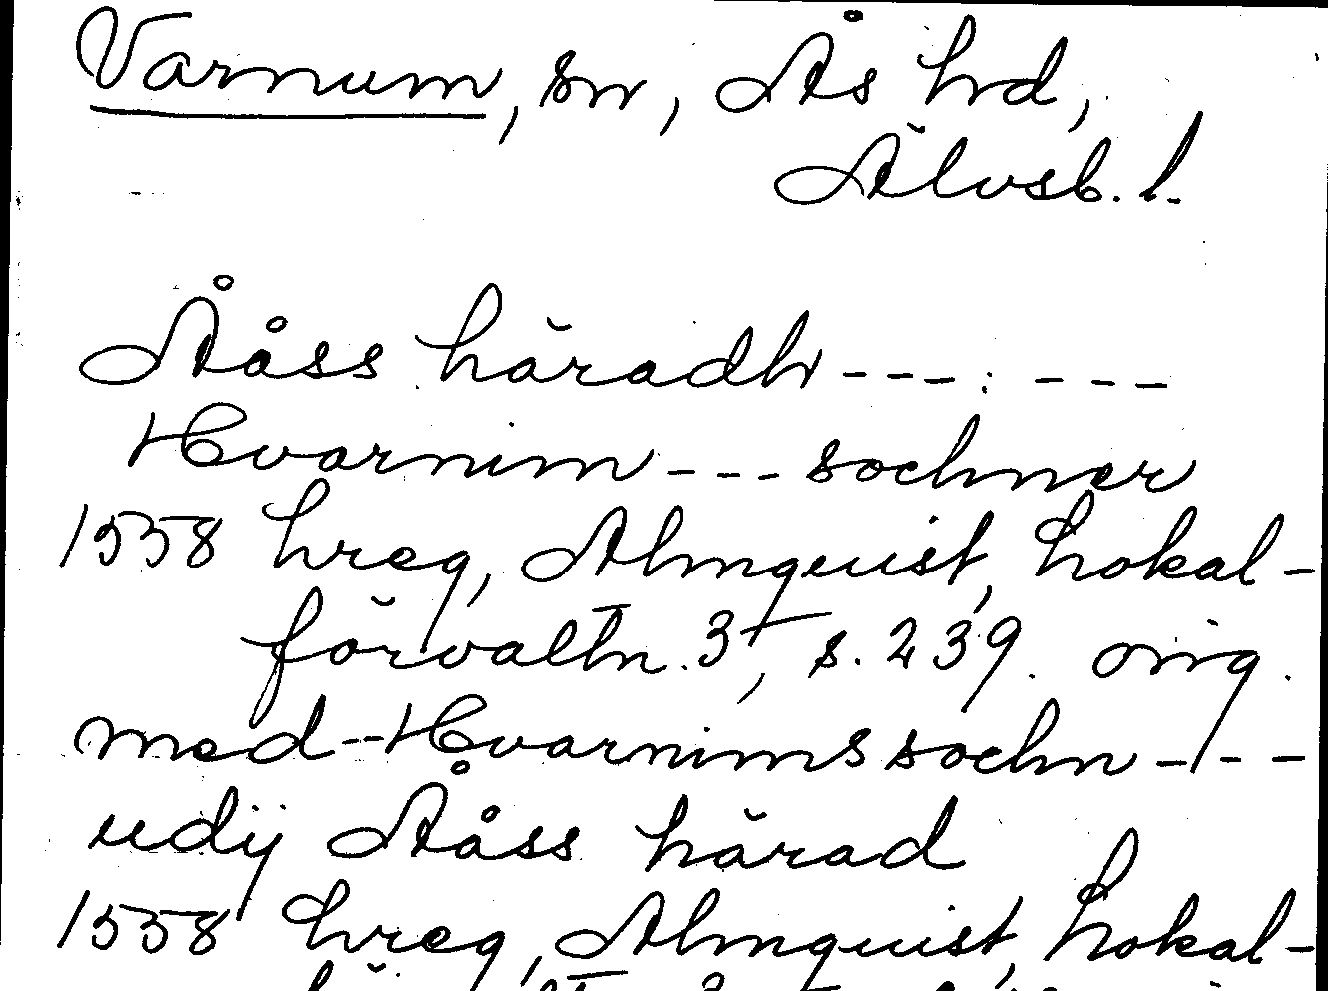 Varnum, sn, Ås hd,
Älvsb. l.
Ååss häradh --- : ---
Hvarnim --- sochner
1558 hreg, Almquist, Lokal-
förvaltn. 3, s. 239. orig.
med -- Hvarnims sochn ---
udij Ååss härad
1558 hreg, Almquist, Lokal-